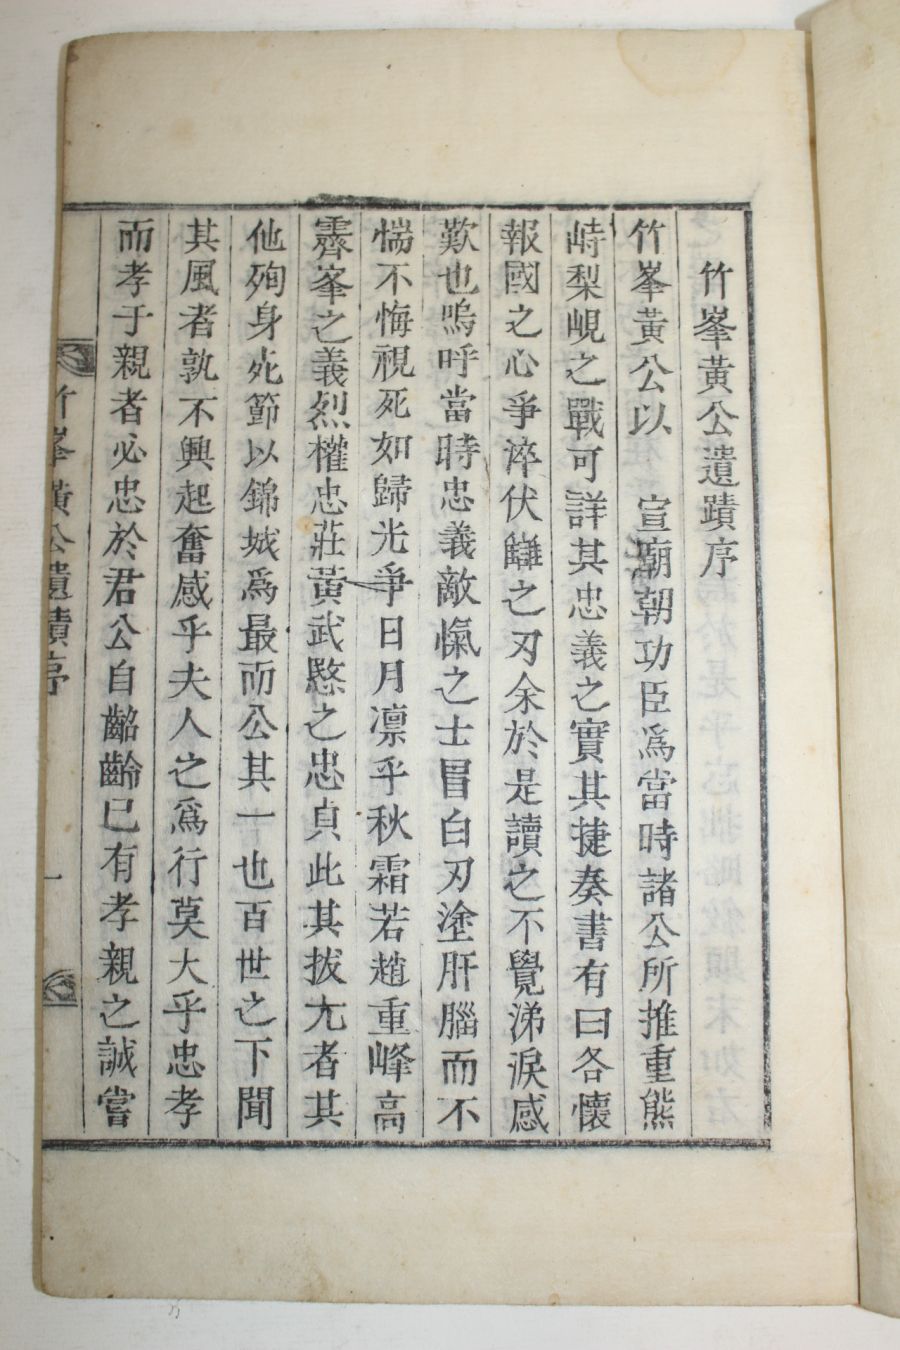 竹峯黃公遺蹟序
竹峯黃公以 宣廟朝功臣爲當時諸公所推重熊
峙梨峴之戰可詳其忠義之實其捷奏書有曰各懷
報國之心爭淬伏讎之刃余於是讀之不覺涕淚感
歎也嗚呼當時忠義敵愾之士冒白刃塗肝腦而不
惴不悔視死如歸光爭日月凛乎秋霜若趙重峰高
霽峯之義烈權忠莊黃武愍之忠貞此其拔尤者其
他殉身死節以錦城爲最而公其一也百世之下聞
其風者孰不興起奮感乎夫人之爲行莫大乎忠孝
而孝于親者必忠於君公自齠齡已有孝親之誠嘗
竹峯黃公遺蹟序
一